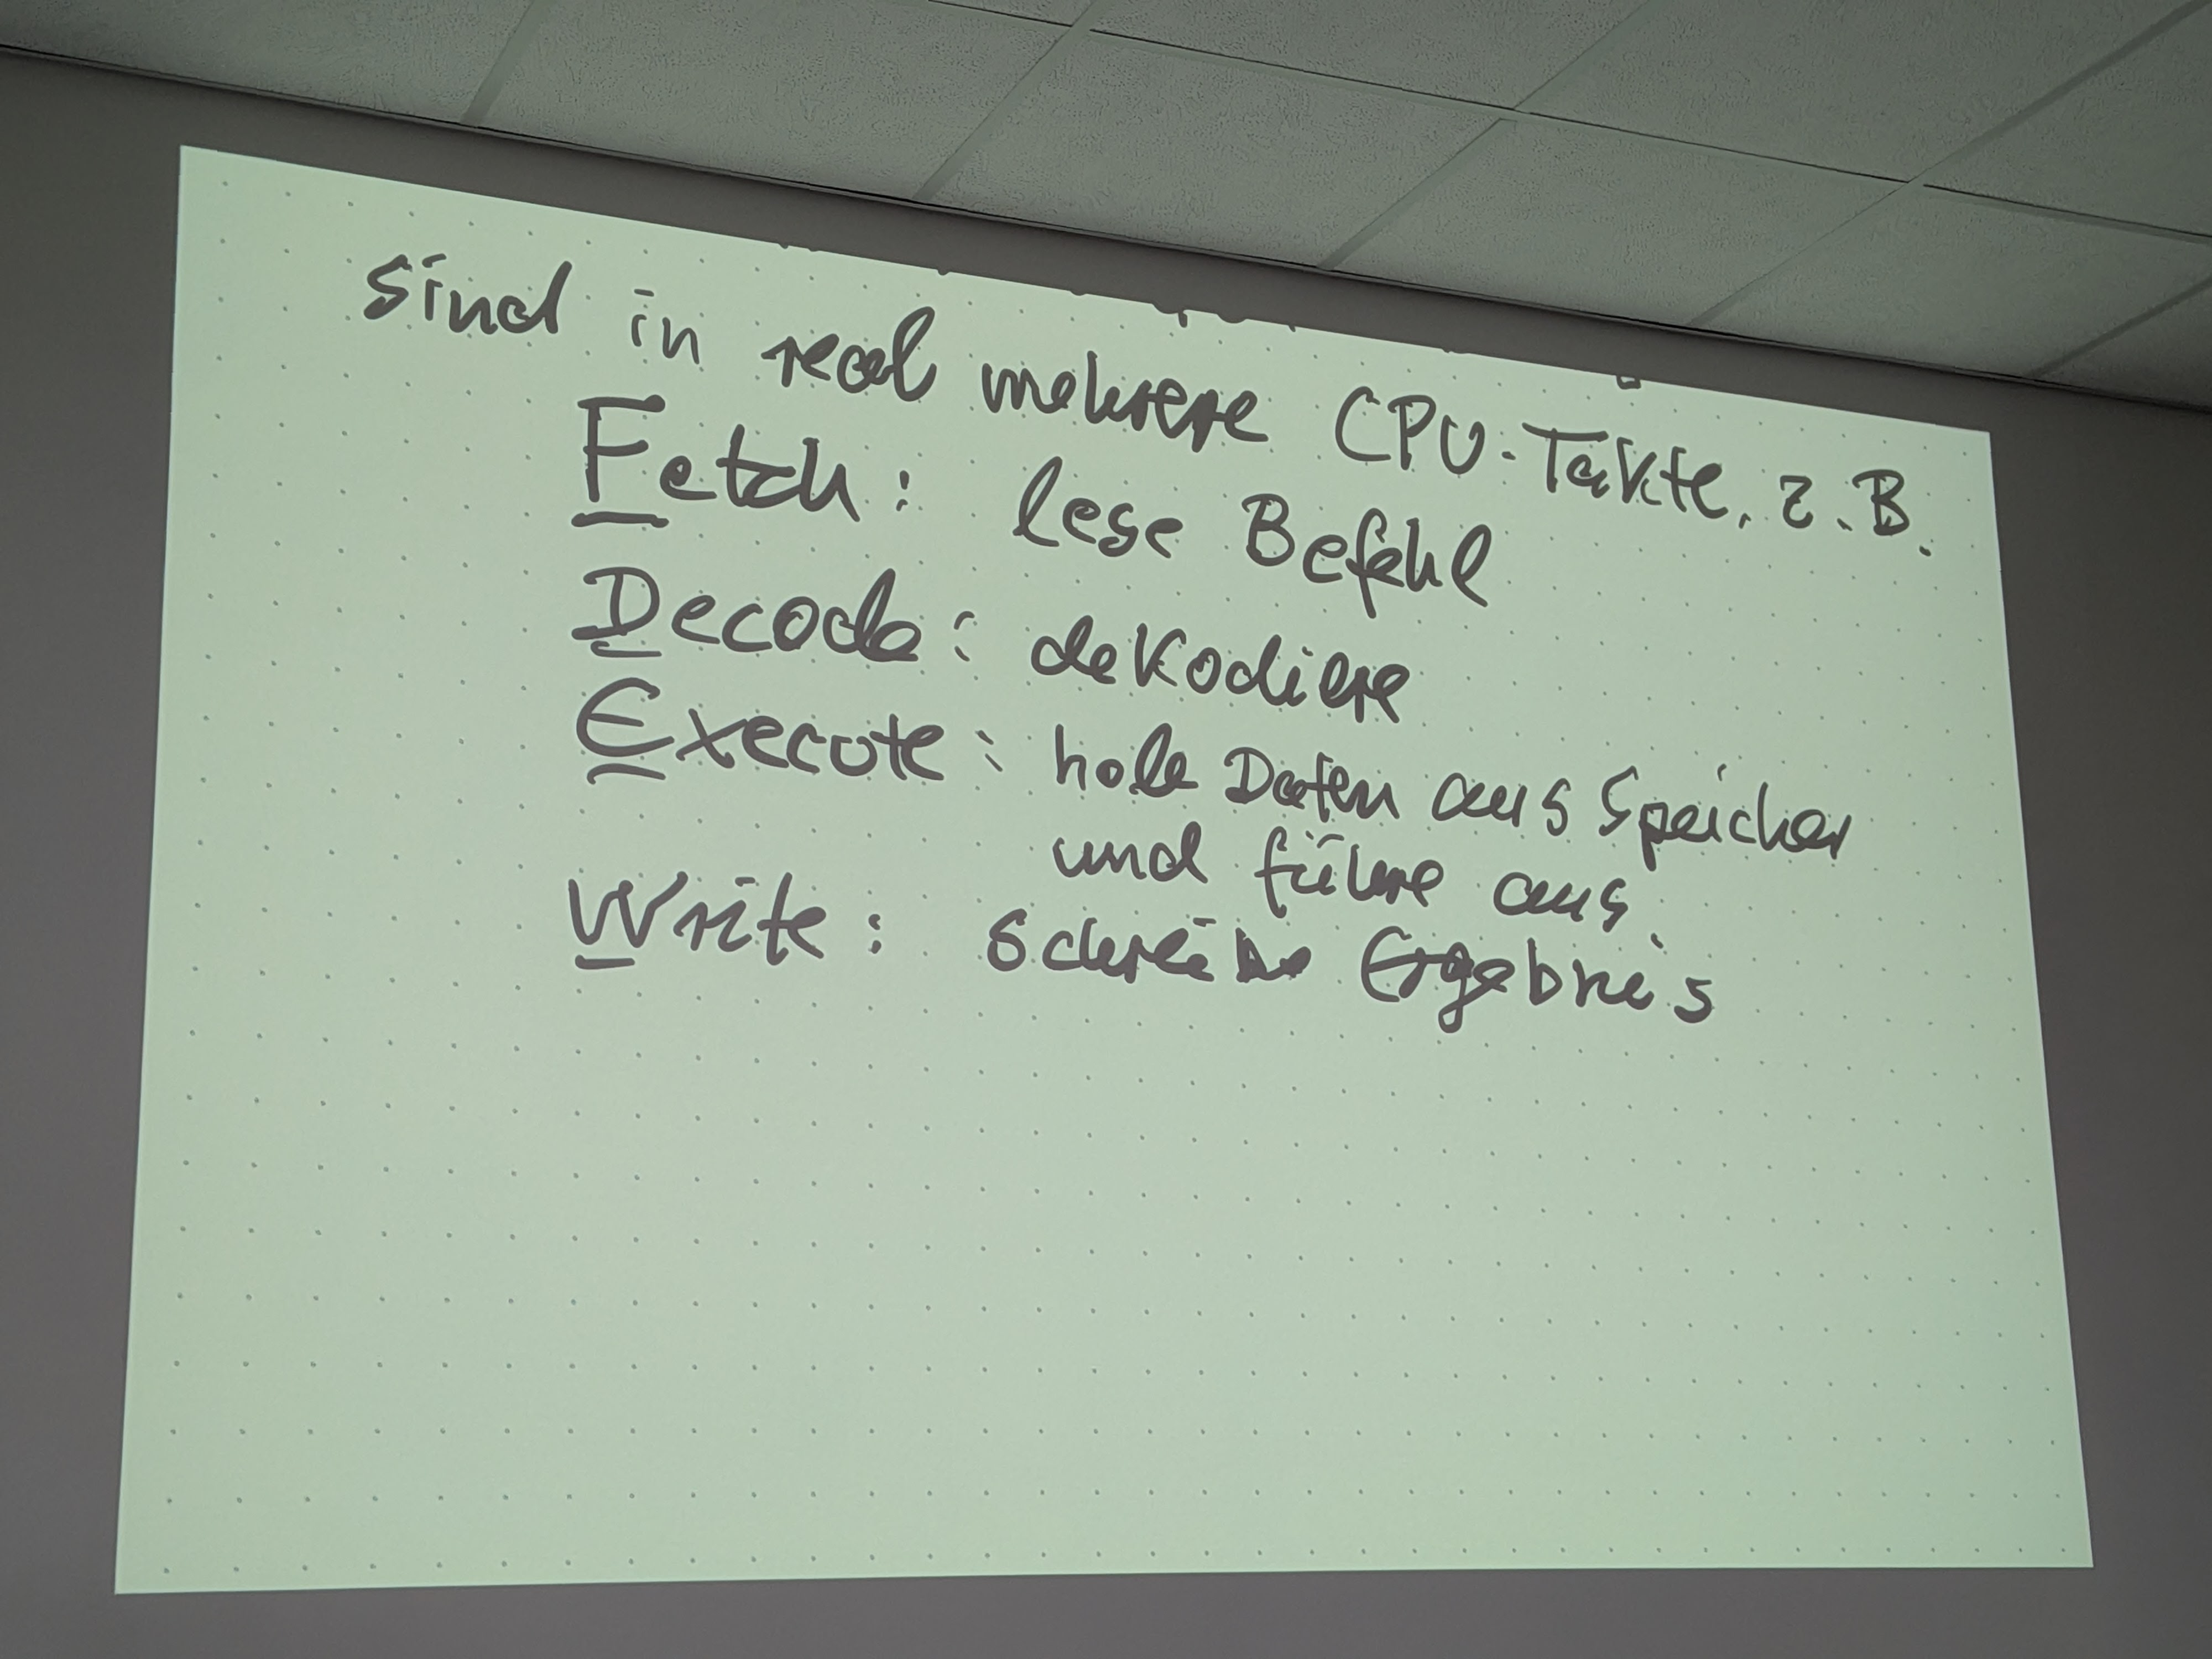 sind in real mehrere CPU-Takte, z.B.
Fetch: lese Befehl
Decode: dekodiere
Execute: hole Daten aus Speicher
und führe aus.
Write: schreibe Ergebnis